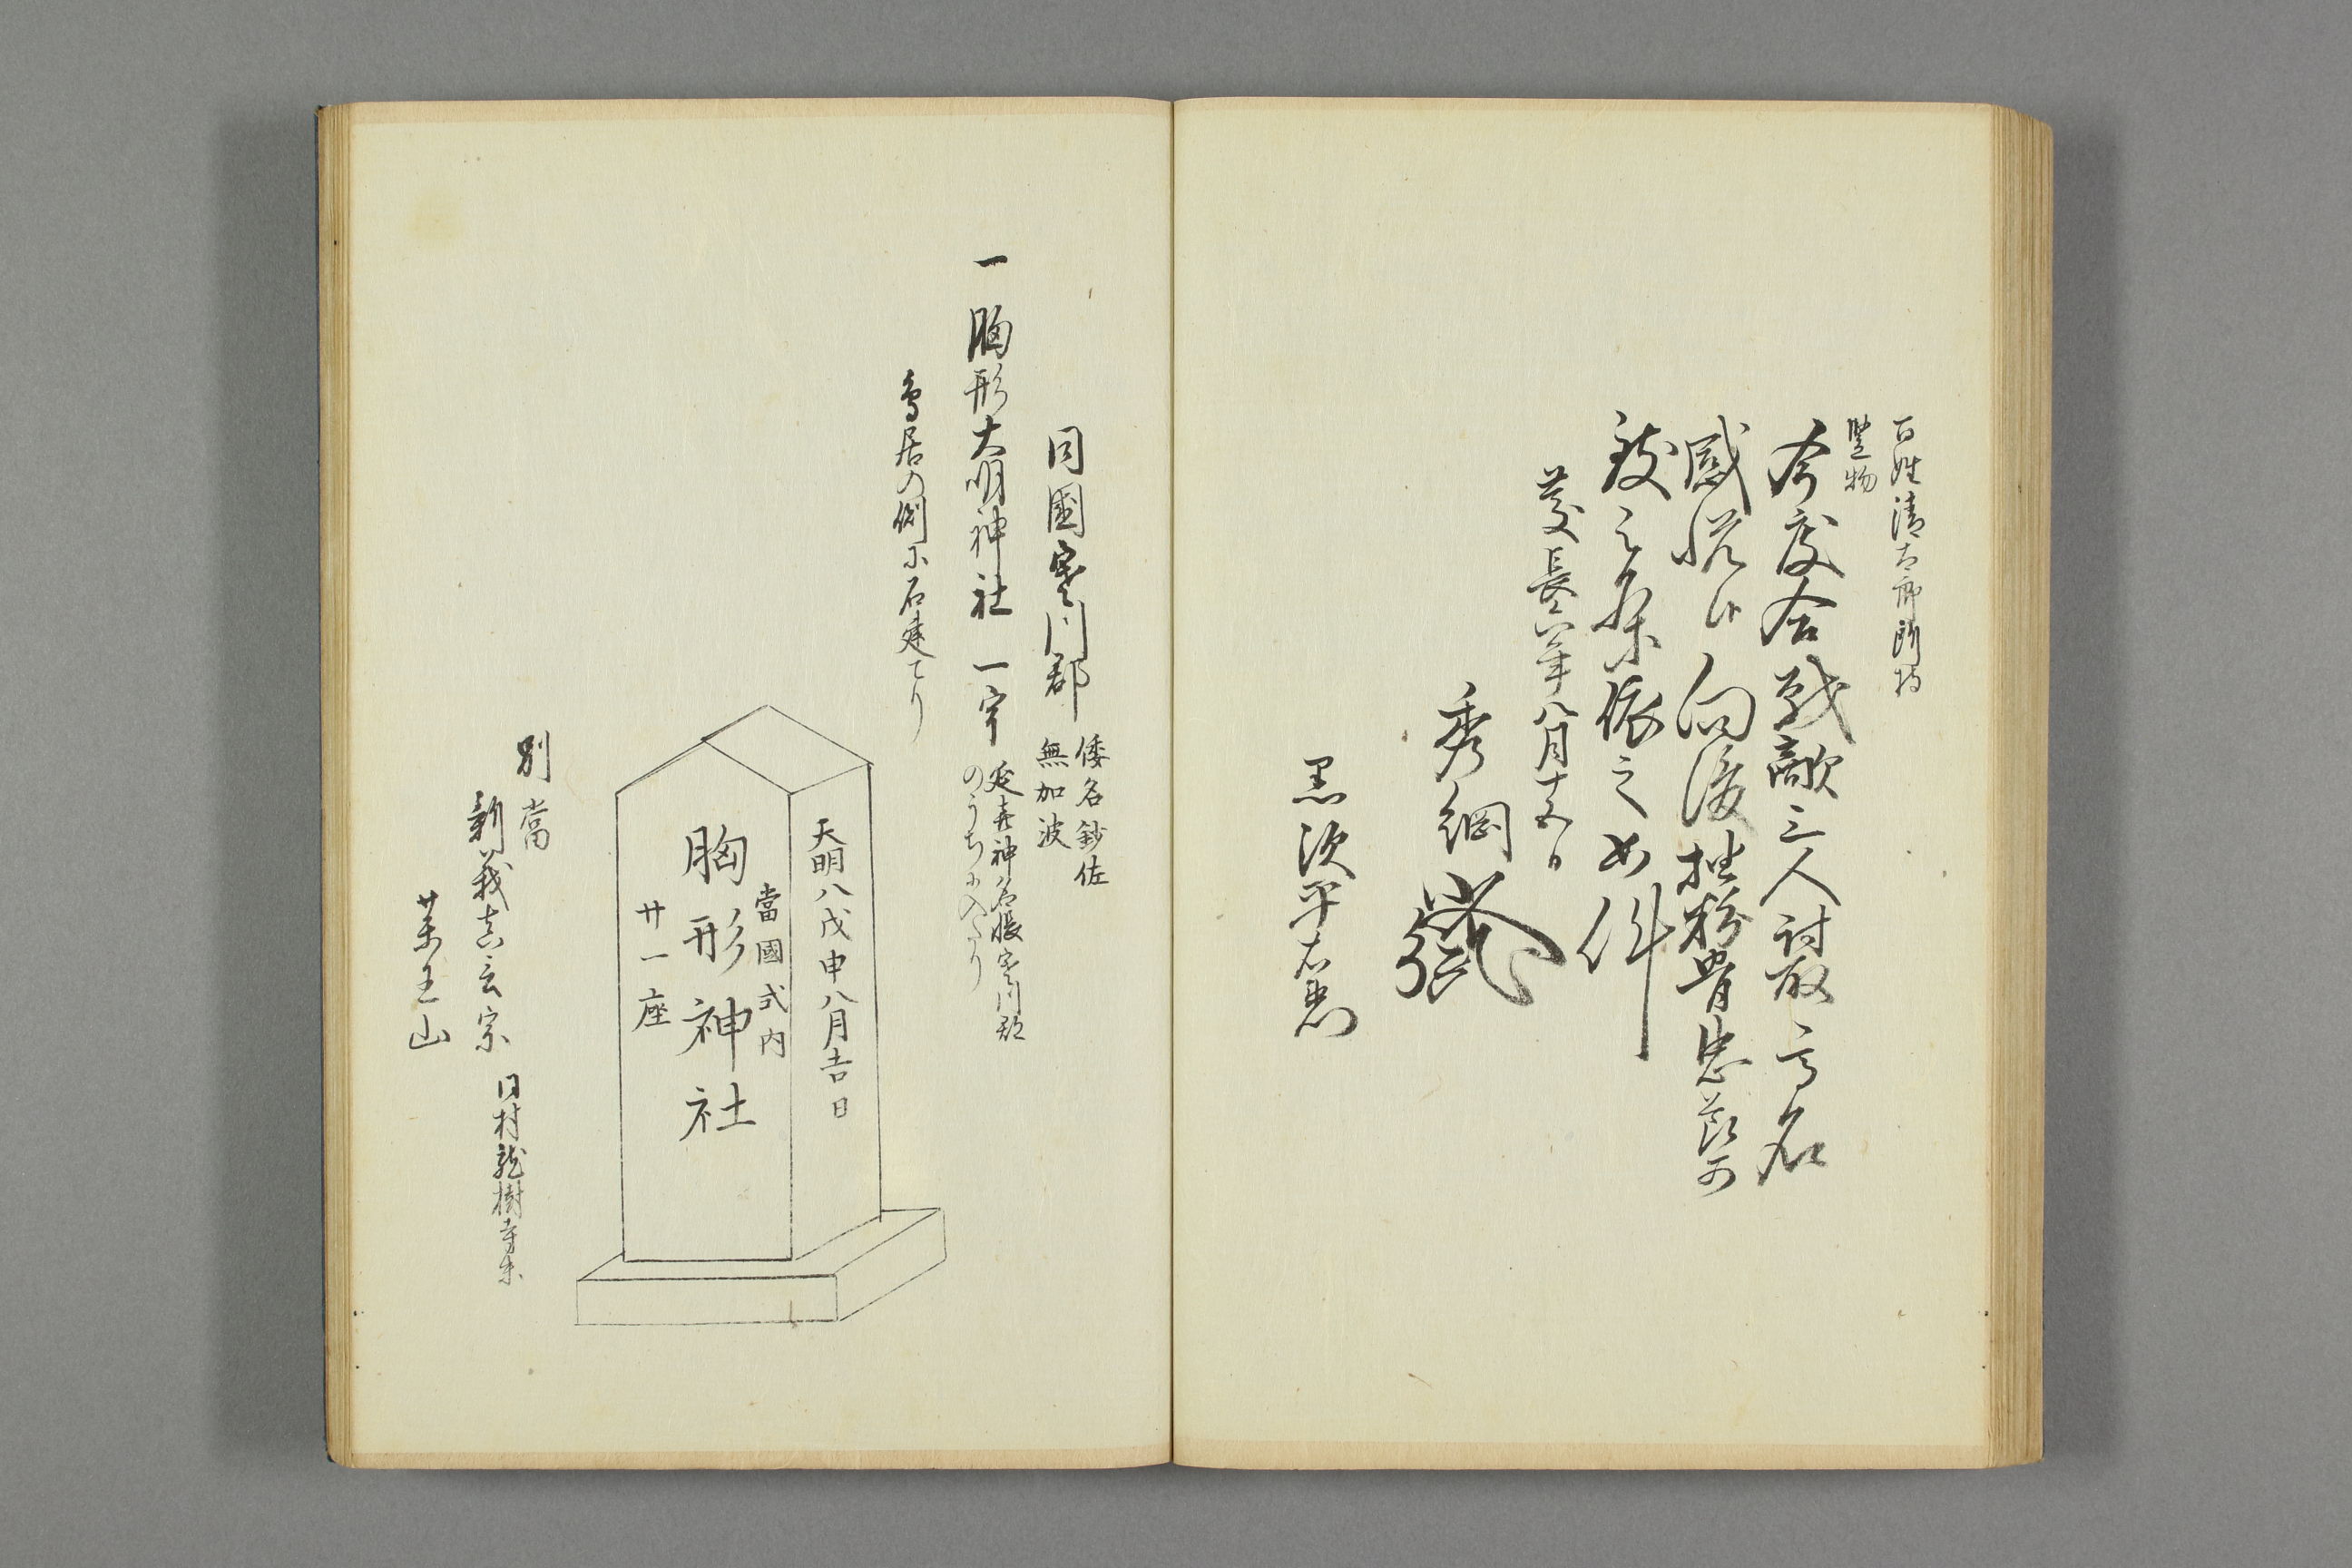 百姓清太郎所持
竪物
今度合戦敵三人討取高名
感悦候向後抽粉骨忠節可
致之条依之如件
慶長六年八月十五日
秀綱
黒沢平右衛
同國寒川郡
倭名鈔佐
無加波
一胸形大明神社一宇
延喜神名帳寒川郡
のうちに入たり
鳥居の側に石建てり
天明八戊申八月吉日
當國式内
胸形神社
廿一座
別當
新義真言宗
同村龍樹寺末
薬王山